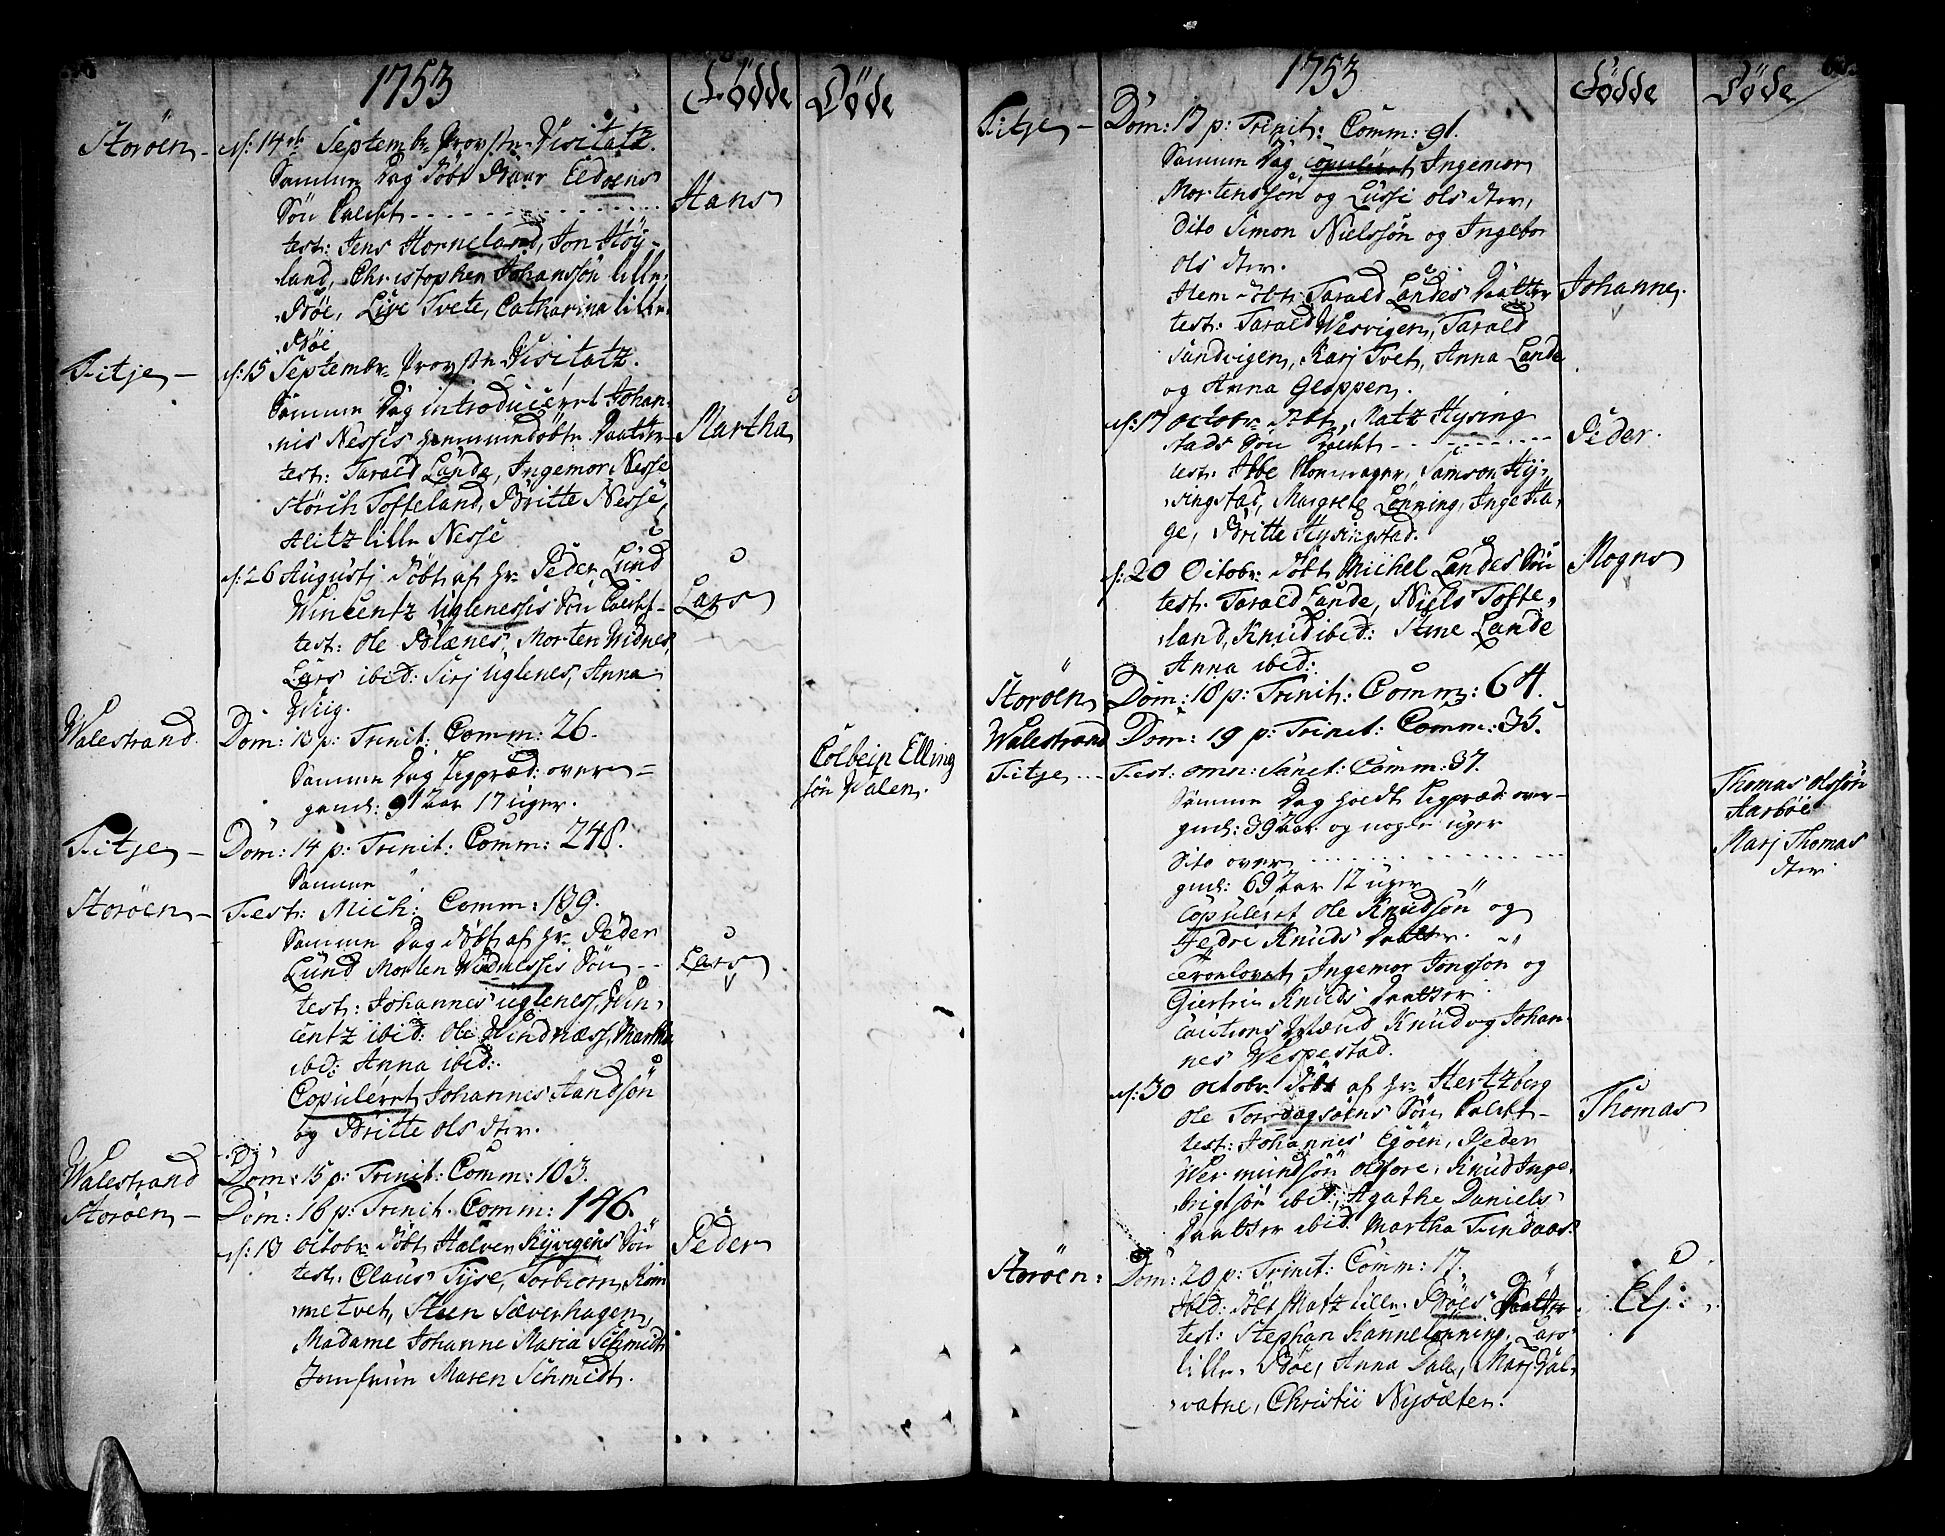 1753
Födde
Döde
Storöen - d: 14de Septembr Provste Visitatz.
Samme Dag Döbt Baar Eldöens
Sön kaldt Hans
test: Jens Horneland, Jon Höy-
land, Christopher Johansön lille
Böe, Live Tvete, Catharina lille
Böe
Fitje - d: 15 Septembr Provste Visitatz.
Samme Dag introduceret Johan-
nis Nesses hiemmedöbte Daatter Martha
test: Tarald Lande, Ingemor Nesse
Störch Toffteland, Britte Nesse,
Alitz lille Nesse
d: 26 Augusti Döbt af Hr Peder Lund
Wincentz Uglenessis Sön kaldt Lars
test: Ole Blænes, Morten Widnes,
Lars ibid: Siri Uglenes, Anna
Wiig.
Walestrand Dom: 13 p: Trinit: Comm: 26.
Samme Dag Ligpræd: over Colbein Elling
gml: 91 Aar 17 uger. sön Walen.
Fitje - Dom: 14 p: Trinit: Comm: 248.
Samme
Storöen - Fest: Mich: Comm: 139.
Samme Dag Döbt af Hr Peder
Lund Morten Widnessis Sön - - Lars
test: Johannes Uglenes, Vin-
centz ibid: Ole Hindnæss, Martha
ibid: Anna ibid:
Copuleret Johannes Aandsön
og Britte Ols dtr.
Walestrand Dom: 15 p: Trinit: Comm: 103.
Storöen - Dom: 16 p: Trinit: Comm: 146.
d: 13 Octobr Döbt Halver Kyvigens Sön Peder
test: Claus Tyse, Torbiorn Rom
metvet, Steen Sæverhagen,
Madame Johanne Maria Schmidt
Jomfrue Maren Schmidt.
1753
Födde
Döde
Fitje - Dom: 17 p: Trinit: Comm: 91.
Samme Dag Copuleret Ingemor
Mortenssön og Lussi Ols dtr,
Dito Simon Nielssön og Ingebor
Ols dtr.
Item Döbt Tarald Landes Daatter Johanne.
test: Tarald Wervigen, Tarald
Sandvigen, Kari Tvet, Anna Lande
og Anna Gloppen.
d: 17 Octobr Döbt Matz Hysing
stads Sön kaldt Peder.
test: Abbe, Samson Hy-
singstad, Margrete Lönning, Inge Ha-
ge, Britte Hysingstad.
d: 20 Octobr Döbt Michel Landes Sön Mogns
test: Tarald Lande, Niels Tofte-
land, Knud ibid: Stine Lande
Anna ibid:
Storöen Dom: 18 p: Trinit: Comm: 64.
Walestrand Dom: 19 p: Trinit: Comm: 35.
Fitje Fest: omn: Sanct: Comm: 37.
Samme Dag holdt Ligpræd: over - Thomas Olssön
gml: 39 Aar og nogle uger Aarböe
Dito over Marj Thomas
gml: 69 Aar 12 uger dtr
Copuleret Ole Knudsön og
Sedri Knuds Daatter.
Trolovet Ingemor Jonsson og
Giertru Knuds Daatter
Cautions Mænd Knud og Johan-
nes Wespestad.
d: 30 Octobr Döbt af Hr Hertzberg
Ole Torsdagsöens Sön kaldt - Thomas
test: Johannes Egöen, Peder
Wermundsön Olfore, Knud Inge-
brigtsön ibid, Agathe Daniels
Daatter ibid. Martha Findaas.
Storöen: Dom: 20 p: Trinit: Comm: 17.
ibid: Döbt Matz lille Böes Daatter Elj:
test: Stephan Kannelönning, Lars
lille Böe, Anna Dale, Marj Dal-
vatne, Christii Nysæter.